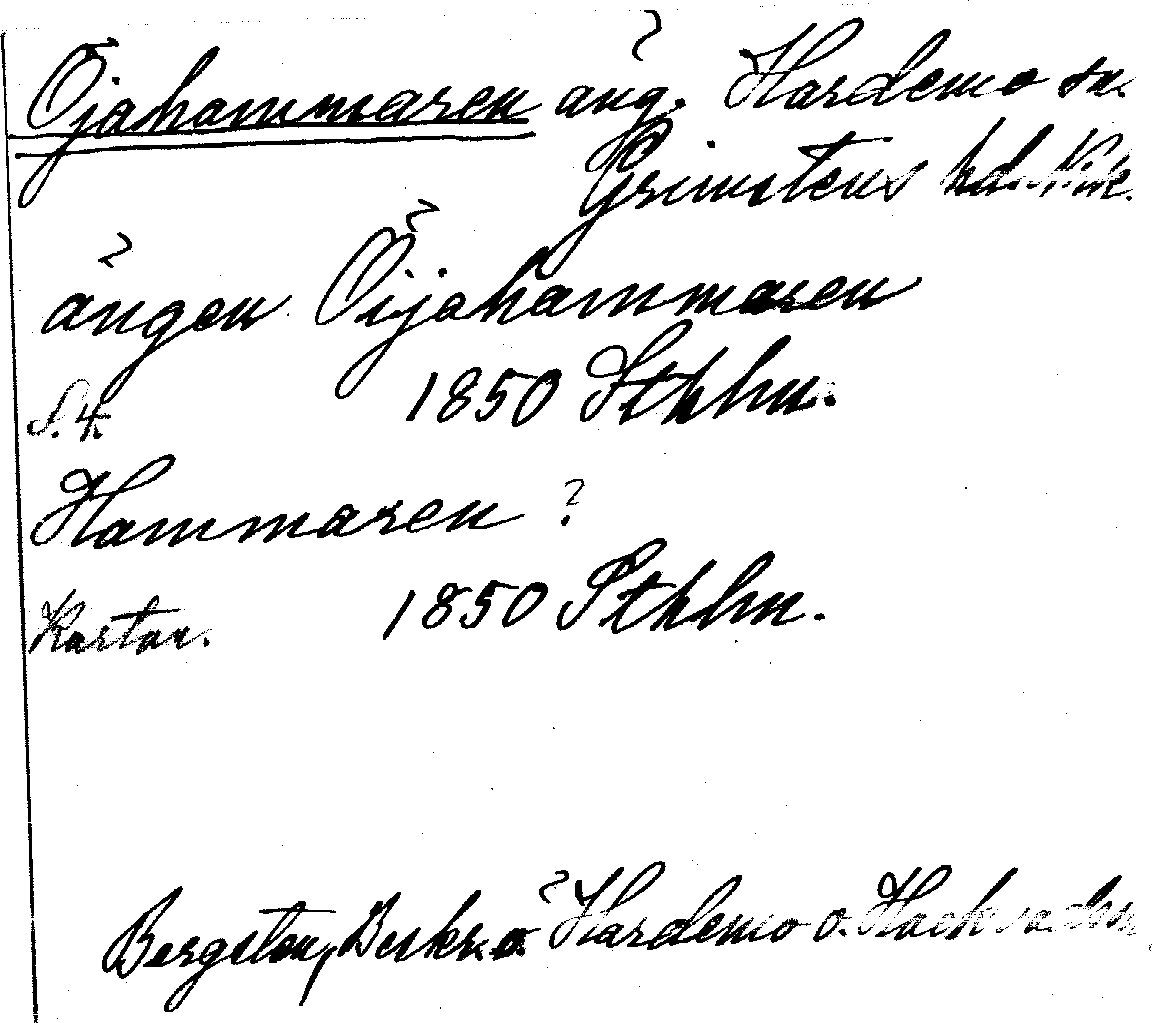 Öjahammaren äng. Hardemo sn.
Grimstens hd. Nke.
ängen Öijahammaren
S. 4. 1850 Sthlm.
Hammaren ?
Kartan. 1850 Sthlm.
Bergsten, Beskr. ö. Hardemo o.